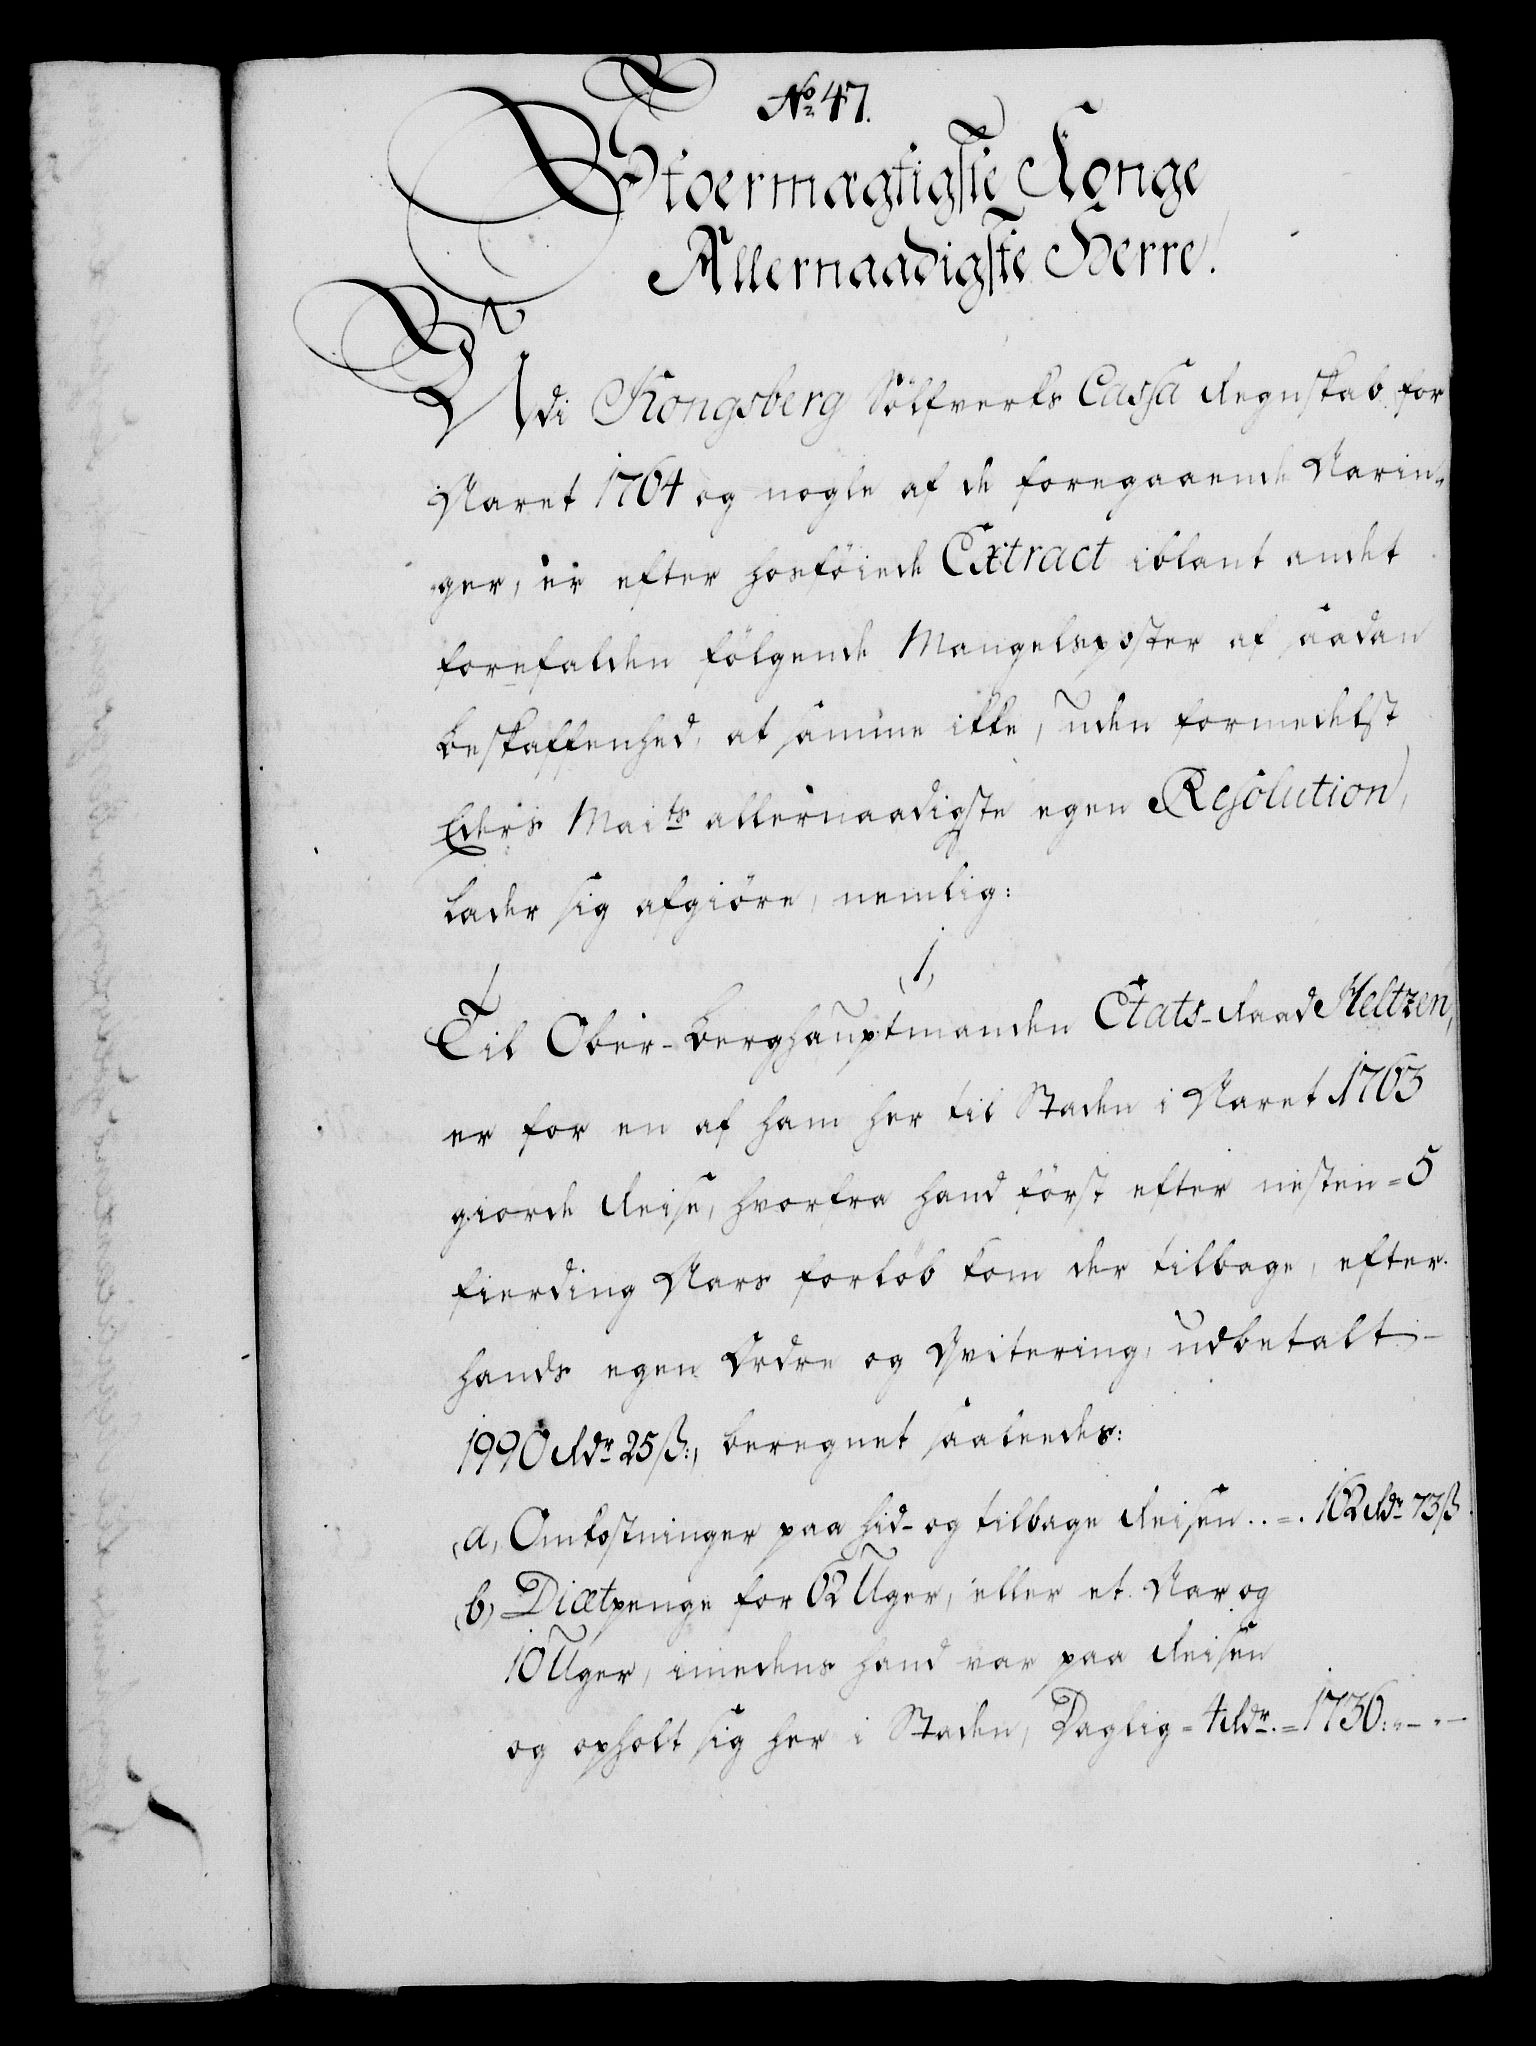 No 47.
Stoermægtigste Konge
Allernaadigste Herre.
Udi Kongsberg Sölfverks Cassa Regnskab for
Aaret 1764 og nogle af de foregaaende Aarin-
ger, er efter hosföiede Extract iblant andet
forefalden fölgende Mangelsposter af saadan
beskaffenhed, at samme ikke, uden formedelst
Eders Maits allernaadigste egen Resolution,
lader sig afgiöre, nemlig:
1,
Til Ober-Berghauptmanden Etats-Raad Heltzen,
er for en af ham her til Staden i Aaret 1763
giorde Reise, hvorfra hand först efter nesten 5
fierding Aars forlöb kom der tilbage, efter
hands egen Ordre og Qvitering, udbetalt
1990 Rdr 25 ß:, beregnet saaledes:
a, Omkostninger paa hid- og tilbage Reisen . . = . 162 Rdr 73 ß
b, Diætpenge for 62 Uger, eller et Aar og
10 Uger, imedens hand var paa Reisen
og opholt sig her i Staden, Daglig = 4 Rdr. = 1736: " - " -